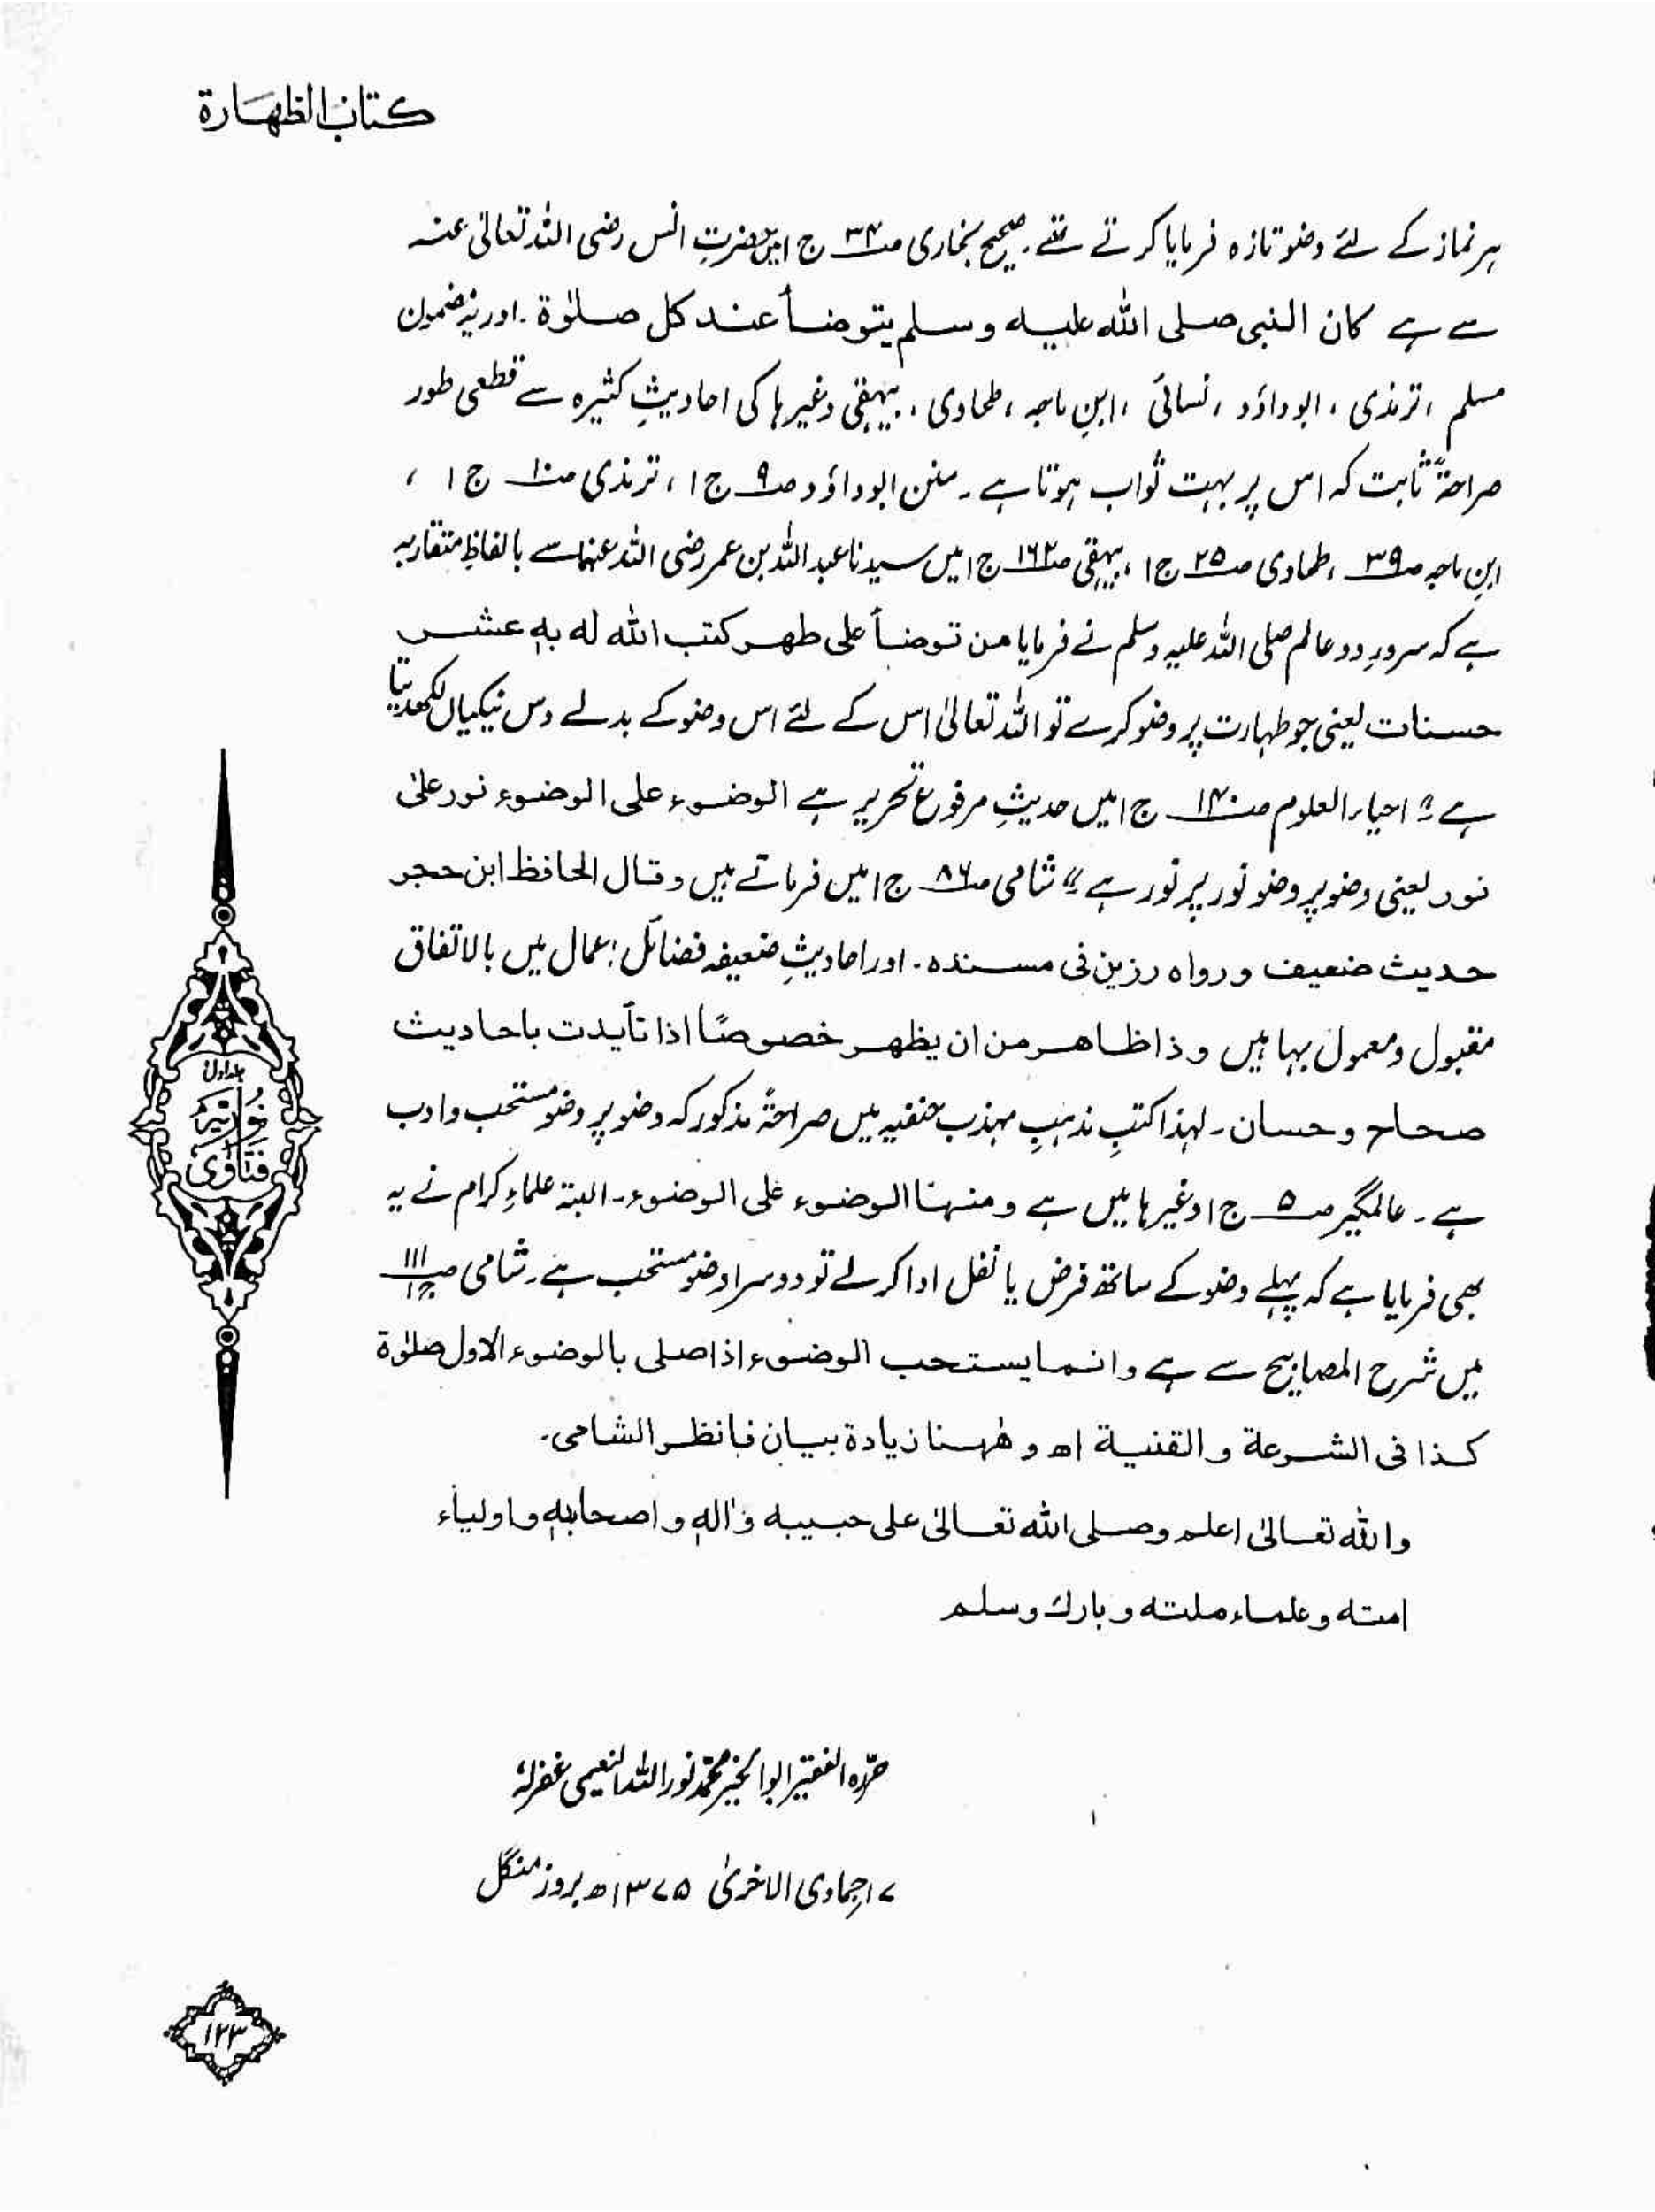 كتاب الطهارة
ہر نماز کے لئے وضو تازہ فرمایا کرتے تھے۔ صحیح بخاری صـ۳۴ ج ا میں حضرتِ انس رضی اللہ تعالیٰ عنہ
سے ہے کان النبی صلی اللہ علیہ وسلم یتوضأ عند کل صلوٰۃ۔ اور یہ مضمون
مسلم ، ترمذی ، ابوداؤد ، نسائی ، ابنِ ماجہ ، طحاوی ، بیہقی وغیرہا کی احادیثِ کثیرہ سے قطعی طور
صراحۃً ثابت کہ اس پر بہت ثواب ہوتا ہے ۔ سنن ابوداؤد صـ۹ ج ۱ ، ترمذی صـ۱۰ ج ۱ ،
ابنِ ماجہ صـ۳۹ ، طحاوی صـ۲۵ ج ۱ ، بیہقی صـ۱۶۲ ج ا میں سیدنا عبد اللہ بن عمر رضی اللہ عنہما سے بالفاظِ متقاربہ
ہے کہ سرورِ دو عالم صلی اللہ علیہ وسلم نے فرمایا من توضأ علی طهر کتب اللہ له بہٖ عشر
حسنات یعنی جو طہارت پر وضو کرے تو اللہ تعالیٰ اس کے لئے اس وضو کے بدلے دس نیکیاں لکھ دیتا
ہے " احیاء العلوم صـ۱۴۰ ج ا میں حدیثِ مرفوع تحریر ہے الوضوء علی الوضوء نور علیٰ
نور یعنی وضو پر وضو نور پر نور ہے " شامی صـ۸۶ ج ا میں فرماتے ہیں وقال الحافظ ابن حجر
حدیث ضعیف ورواہ رزین فی مسندہ۔ اور احادیثِ ضعیفہ فضائل اعمال میں بالاتفاق
مقبول و معمول بہا ہیں وذا ظاهر من ان یظهر خصوصًا اذا تأیدت باحادیث
صحاح وحسان۔ لہٰذا کتبِ مذہبِ مہذب حنفیہ میں صراحۃً مذکور کہ وضو پر وضو مستحب و ادب
ہے ۔ عالمگیر صـ۵ ج ا وغیرہا میں ہے ومنہا الوضوء علی الوضوء۔ البتہ علماءِ کرام نے یہ
بھی فرمایا ہے کہ پہلے وضو کے ساتھ فرض یا نفل ادا کر لے تو دوسرا وضو مستحب ہے۔ شامی صـ۱۱۱ ج۱
میں شرح المصابیح سے ہے وانما یستحب الوضوء اذا صلی بالوضوء الاول صلوٰۃ
کذا فی الشرعة والقنیة اھ وھٰہنا زیادة بیان فانظر الشامی۔
واللہ تعالیٰ اعلم وصلی اللہ تعالیٰ علی حبیبه واٰلهٖ واصحابهٖ واولیاء
امته وعلماء ملته وبارك وسلم
حرّرہ الفقیر ابوالخیر محمد نور اللہ النعیمی غفرلہٗ
۱۷ جمادی الاخریٰ ۱۳۷۵ھ بروز منگل
جلد اول
نوریہ
فتاوی
۱۲۳